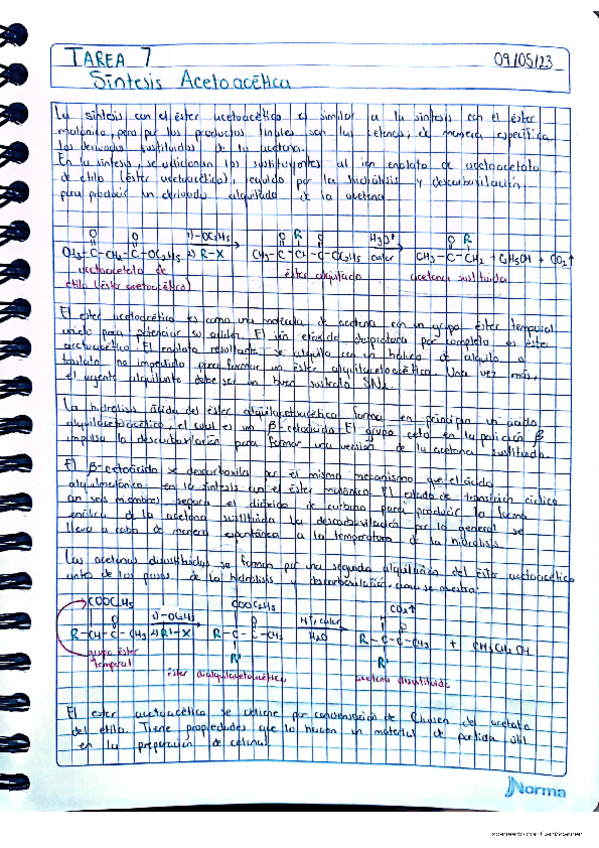 TAREA 7 09/05/23
Síntesis Acetoacética
La síntesis con el éster acetoacético es similar a la síntesis con el éster
malónico, pero por los productos finales son las cetonas, de manera específica
los derivados sustituidos de la acetona.
En la síntesis, se adicionan los sustituyentes al ion enolato de acetoacetato
de etilo (éster acetoacético), seguido por la hidrólisis y descarboxilación
para producir un derivado alquilado de la acetona
O O 1) -OC2H5 O R O H3O+ O R
CH3-C-CH2-C-OC2H5 2) R-X CH3-C-CH-C-OC2H5 calor CH3-C-CH2 + C2H5OH + CO2↑
acetoacetato de éster alquilado acetona sustituida
etilo (éster acetoacético)
El éster acetoacético es como una molécula de acetona con un grupo éster temporal
unido para potenciar su acidez. El ion etóxido desprotona por completo es éster
acetoacético. El enolato resultante se alquila con un haluro de alquilo o
tosilato no impedido para formar un éster alquilacetoacético. Una vez más,
el agente alquilante debe ser un buen sustrato SN2.
La hidrólisis ácida del éster alquilacetoacético forma en principio un ácido
alquilacetoacético, el cual es un β-cetoácido. El grupo ceto en la posición β
impulsa la descarboxilación para formar una versión de la acetona sustituida.
El β-cetoácido se descarboxila por el mismo mecanismo que el ácido
alquilmalónico en la síntesis con el éster malónico. El estado de transición cíclico
con seis miembros separa el dióxido de carbono para producir la forma
enólica de la acetona sustituida. La descarboxilación por lo general se
lleva a cabo de manera espontánea a la temperatura de la hidrólisis
Las acetonas disustituidas se forman por una segunda alquilación del éster acetoacético
antes de los pasos de la hidrólisis y descarboxilación como se muestra:
COOC2H5 COOC2H5 CO2↑
O 1) -OC2H5 O H+, calor O
R-CH-C-CH3 2) R'-X R-C-C-CH3 H2O R-C-C-CH3 + CH3CH2OH
grupo éster R' R'
temporal éster dialquilacetoacético acetona disustituida
El ester acetoacético se obtiene por condensación de Claisen del acetato
del etilo. Tiene propiedades que lo hacen un material de partida útil
en la preparación de cetonas
Norma
Escaneado con CamScanner